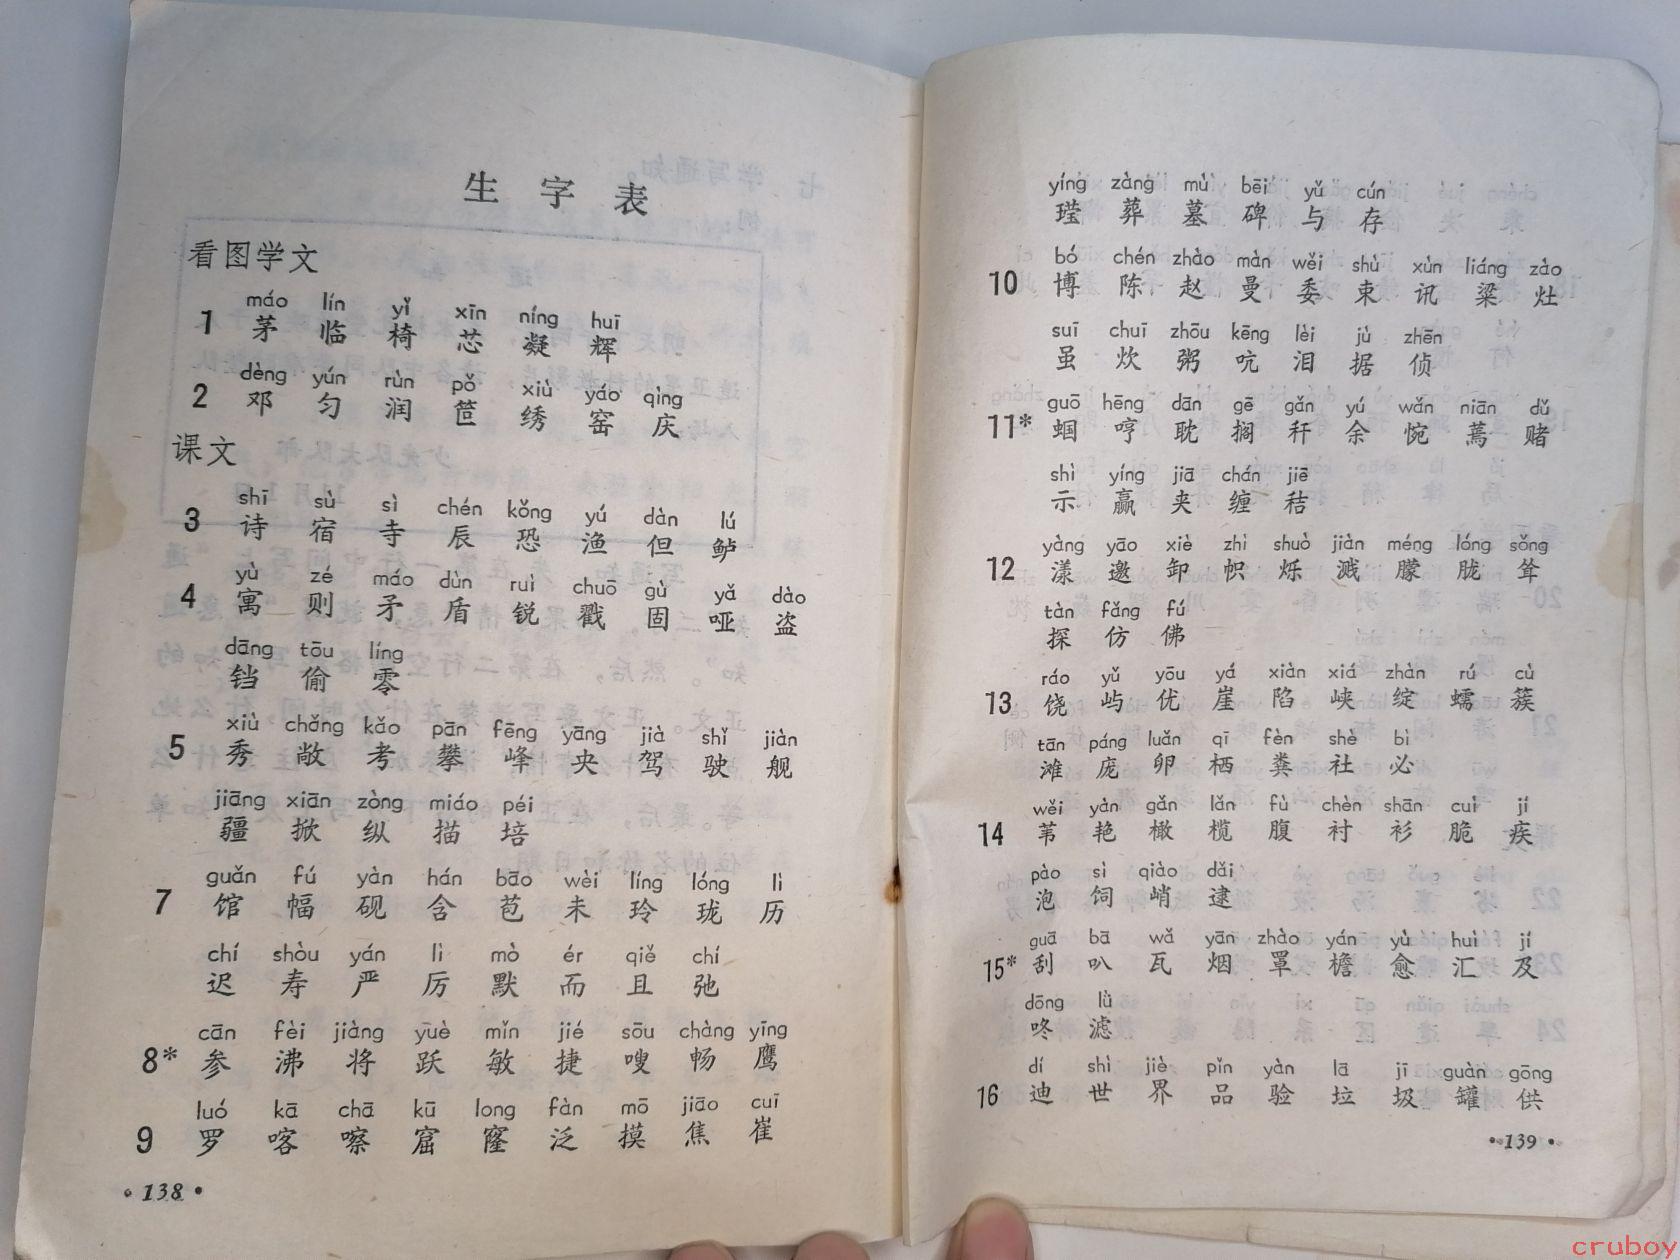 生字表
看图学文
máo lín yǐ xīn níng huī
1 茅 临 椅 芯 凝 辉
dèng yún rùn pǒ xiù yáo qìng
2 邓 匀 润 笸 绣 窑 庆
课文
shī sù sì chén kǒng yú dàn lú
3 诗 宿 寺 辰 恐 渔 但 鲈
yù zé máo dùn ruì chuō gù yǎ dào
4 寓 则 矛 盾 锐 戳 固 哑 盗
dāng tōu líng
铛 偷 零
xiù chǎng kǎo pān fēng yāng jià shǐ jiàn
5 秀 敞 考 攀 峰 央 驾 驶 舰
jiāng xiān zòng miáo péi
疆 掀 纵 描 培
guǎn fú yàn hán bāo wèi líng lóng lì
7 馆 幅 砚 含 苞 未 玲 珑 历
chí shòu yán lì mò ér qiě chí
迟 寿 严 厉 默 而 且 弛
cān fèi jiàng yuè mǐn jié sōu chàng yīng
8* 参 沸 将 跃 敏 捷 嗖 畅 鹰
luó kā chā kū long fàn mō jiāo cuī
9 罗 喀 嚓 窟 窿 泛 摸 焦 崔
•138•
yíng zàng mù bēi yǔ cún
莹 葬 墓 碑 与 存
bó chén zhào màn wěi shù xùn liáng zào
10 博 陈 赵 曼 委 束 讯 梁 灶
suī chuī zhōu kēng lèi jù zhēn
虽 炊 粥 吭 泪 据 侦
guō hēng dān gē gǎn yú wǎn niān dǔ
11* 蝈 哼 耽 搁 秆 余 惋 蔫 赌
shì yíng jiā chán jiē
示 赢 夹 缠 秸
yàng yāo xiè zhì shuò jiàn méng lóng sǒng
12 漾 邀 卸 帜 烁 溅 朦 胧 耸
tàn fǎng fú
探 仿 佛
ráo yǔ yōu yá xiàn xiá zhàn rú cù
13 饶 屿 优 崖 陷 峡 绽 蠕 簇
tān páng luǎn qī fèn shè bì
滩 庞 卵 栖 粪 社 必
wěi yàn gǎn lǎn fù chèn shān cuì jí
14 苇 艳 橄 榄 腹 衬 衫 脆 疾
pào sì qiào dǎi
泡 饲 峭 逮
guā bā wǎ yān zhào yán yù huì jí
15* 刮 叭 瓦 烟 罩 檐 愈 汇 及
dōng lǜ
咚 滤
dí shì jiè pǐn yàn lā jī guàn gōng
16 迪 世 界 品 验 垃 圾 罐 供
•139•
cruboy